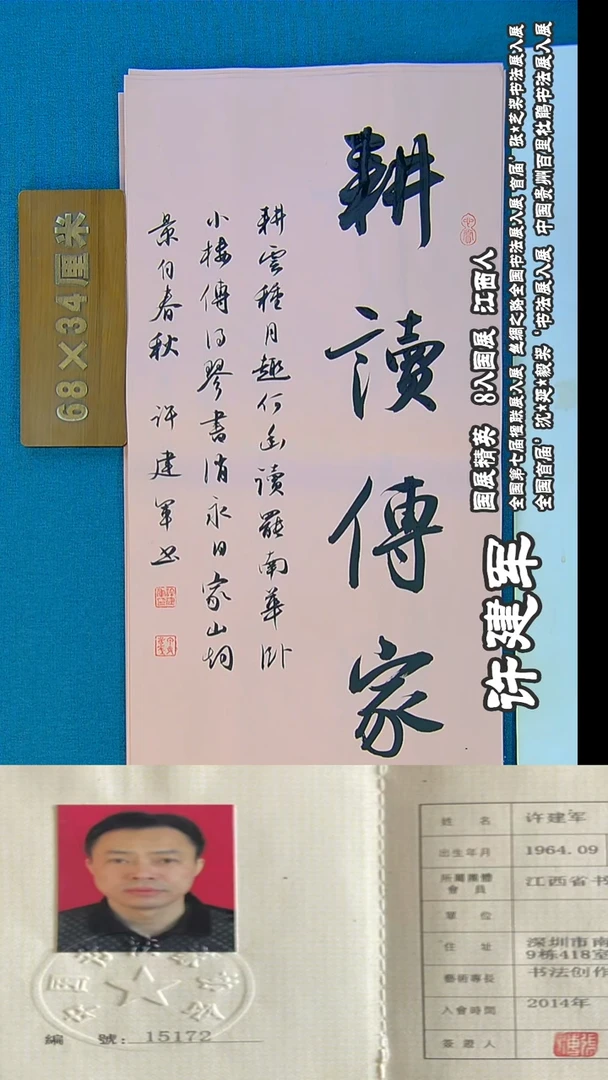 耕讀傳家
耕雲種月趣何幽讀罷南華卧
小楼傳得琴書消永日家山垌
景伯春秋 许建軍书
68×34厘米
许建军
国展精英 8入国展 江西人
全国第七届楹联展入展 丝绸之路全国书法展入展 首届'张★芝奖书法展入展
全国首届' 沈★延★毅奖 '书法展入展 中国贵州百里杜鹃书法展入展
編 號: 15172
姓 名 许建军
出生年月 1964.09
所屬團體會員 江西省书
單 位
住 址 深圳市南
9栋418室
藝術專長 书法创作
入會時間 2014年
簽證人